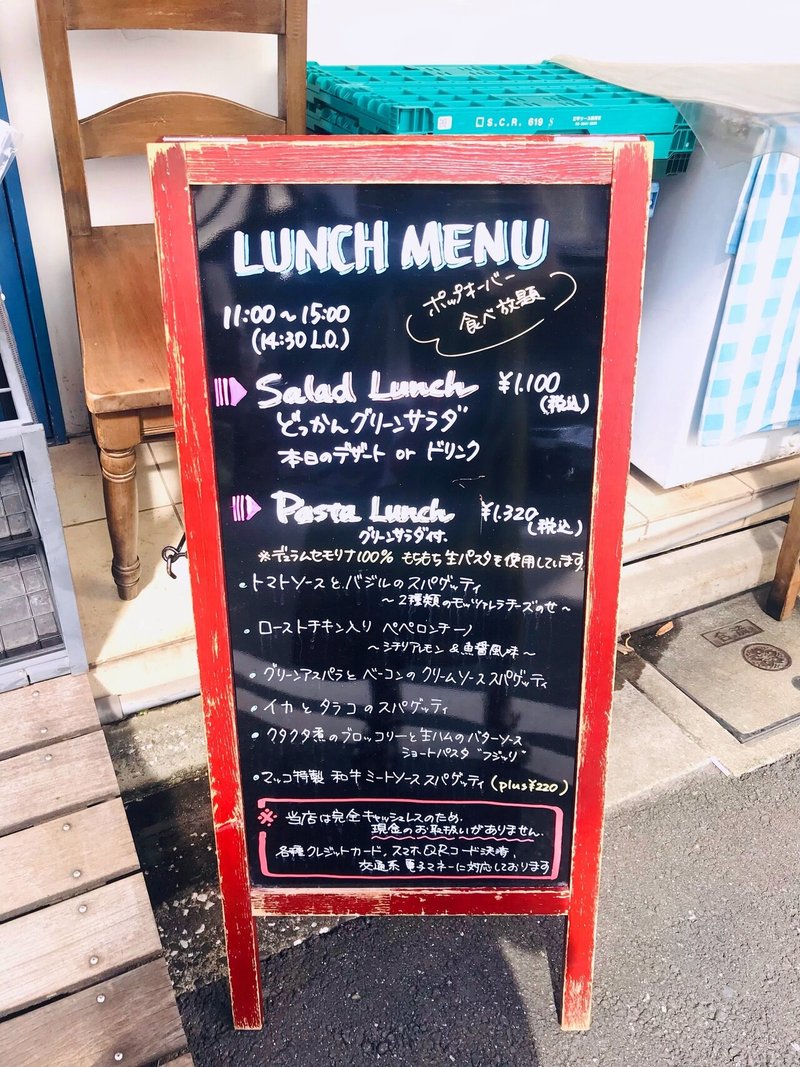 □ S.C.R. 619 S
LUNCH MENU
ポップキーバー
食べ放題
11:00～15:00
(14:30 L.O.)
Salad Lunch ¥1.100
(税込)
どっかんグリーンサラダ
本日のデザート or ドリンク
Pasta Lunch ¥1.320
(税込)
グリーンサラダ付.
※デュラムセモリナ100% もちもち生パスタを使用しています
・トマトソースとバジルのスパゲッティ
～2種類のモッツァレラチーズのせ～
・ローストチキン入り ペペロンチーノ
～シチリアレモン & 魚醤風味～
・グリーンアスパラとベーコンのクリームソーススパゲッティ
・イカとタラコのスパゲッティ
・クタクタ煮のブロッコリーと生ハムのバターソース
ショートパスタ "フジッリ"
・マッコ特製 和牛ミートソーススパゲッティ (plus¥220)
※ 当店は完全キャッシュレスのため.
現金のお取扱いがありません.
各種クレジットカード, スマホQRコード決済,
交通系電子マネーに対応しております